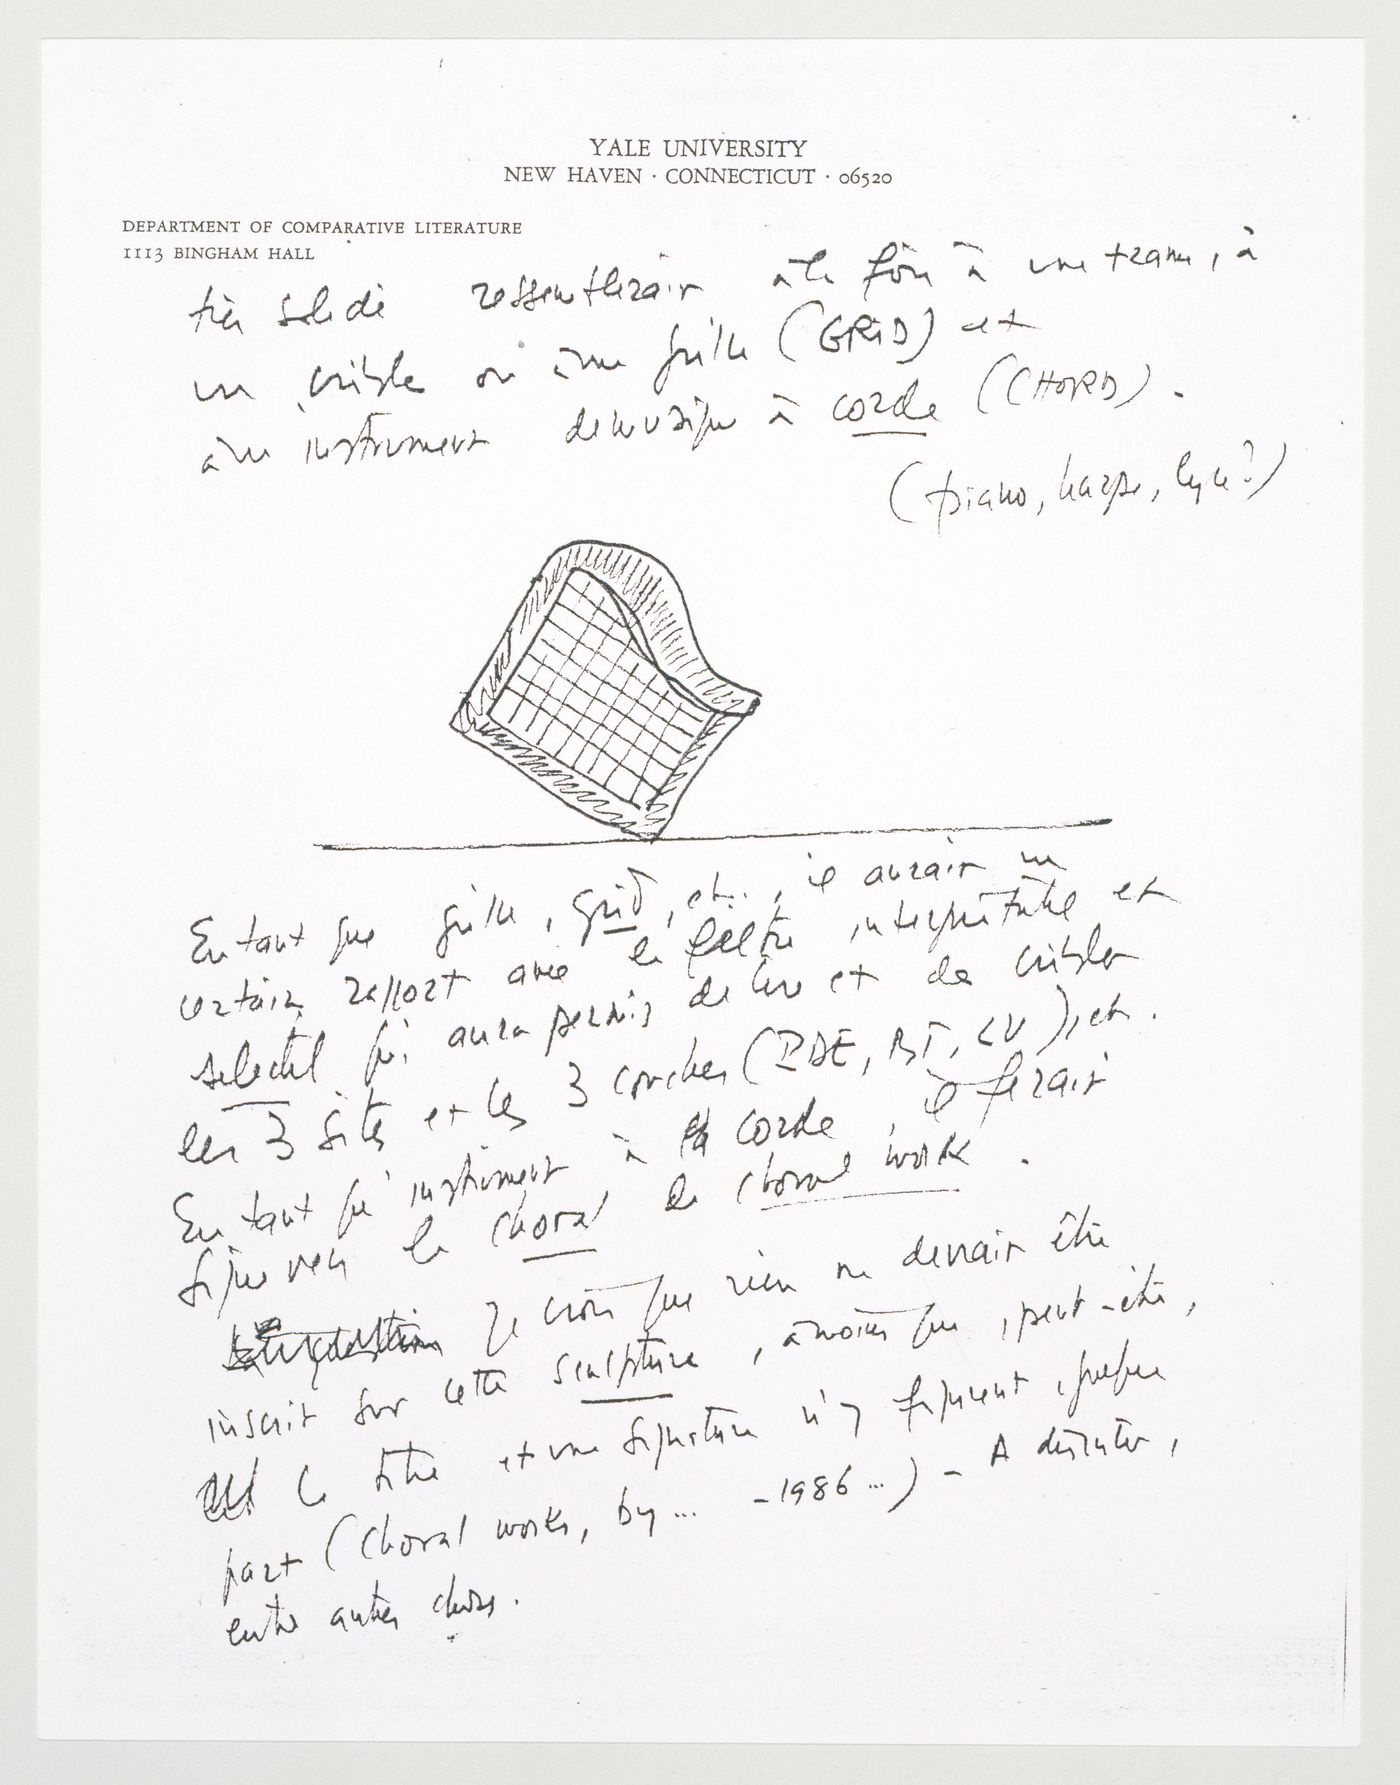 YALE UNIVERSITY
NEW HAVEN · CONNECTICUT · 06520
DEPARTMENT OF COMPARATIVE LITERATURE
1113 BINGHAM HALL
très solide ressemblerait à la fois à une trame, à
un crible ou à une grille (GRID) et
à un instrument de musique à corde (CHORD).
(piano, harpe, lyre?)
En tant que grille, grid, etc., il aurait un
certain rapport avec le filtre interprétatif et
sélectif qui aura permis de lire et de cribler
les 3 sites et les 3 couches (PDE, BT, LV), etc.
En tant qu'instrument à corde, il ferait
signe vers le choral de choral work.
Je crois que rien ne devrait être
inscrit sur cette sculpture, à moins que, peut-être,
le titre et une signature n'y figurent, quelque
part (Choral works, by... -1986...) - A discuter,
entre autres choses.